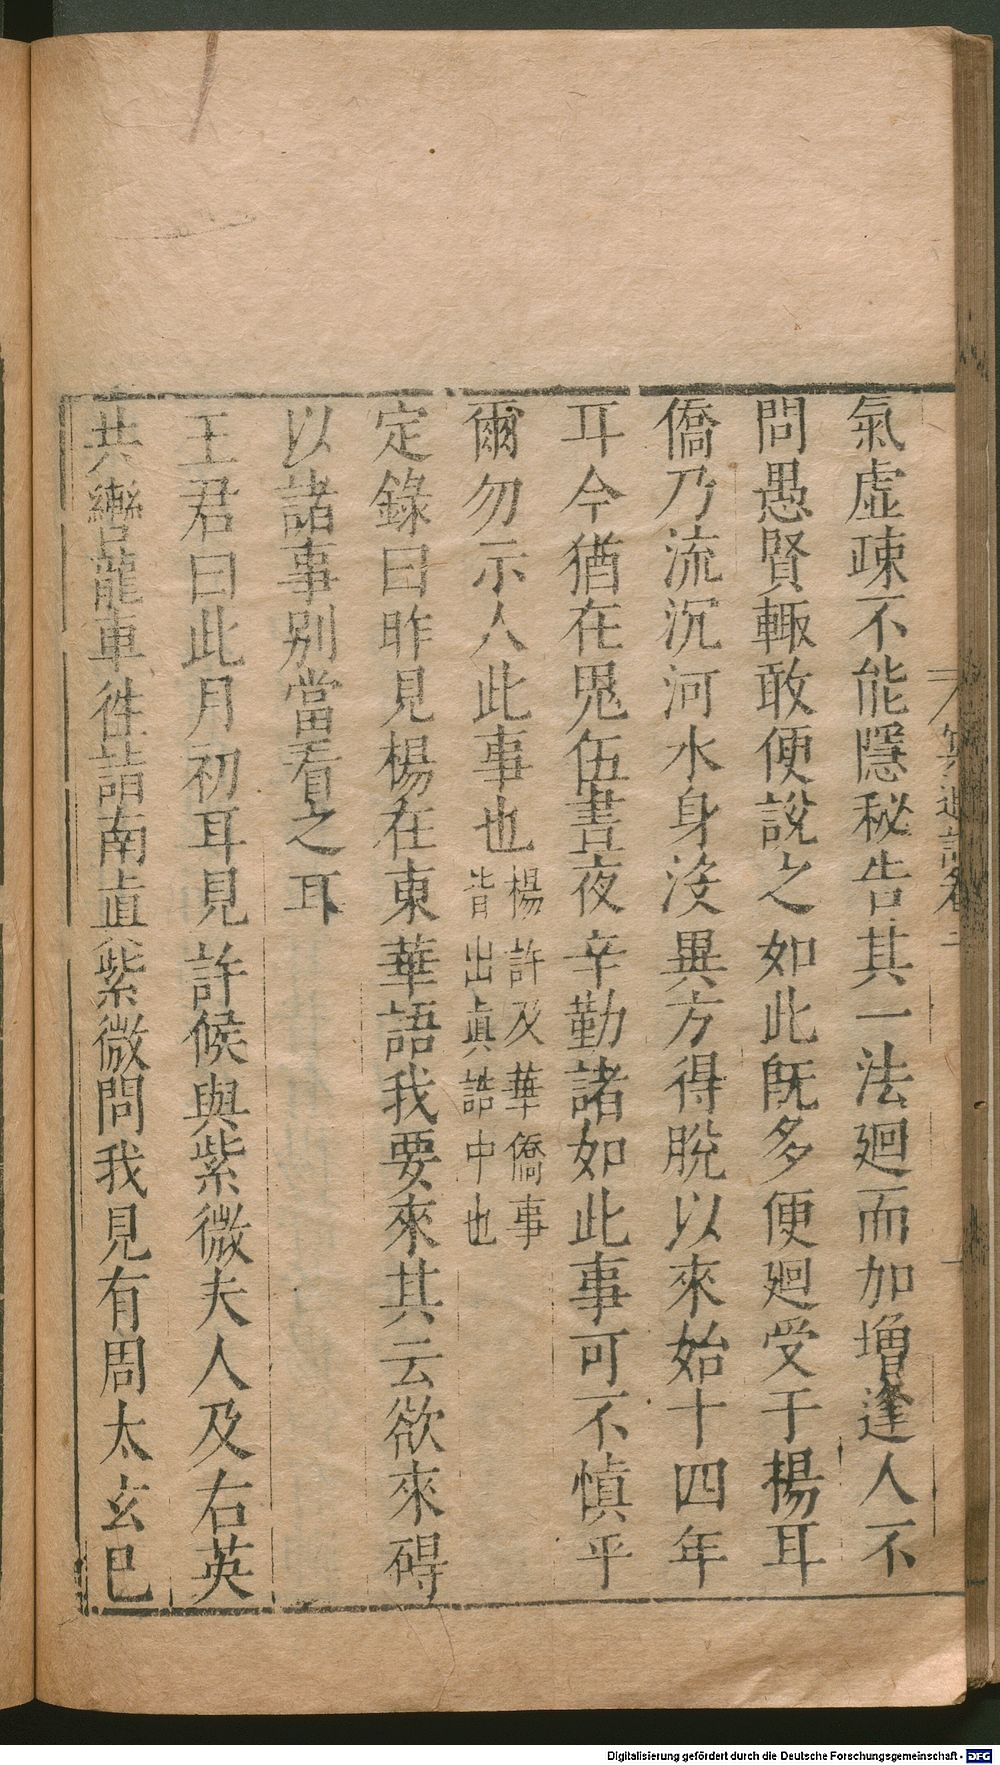 氣虚疎不能隱秘告其一法廻而加增逢人不
問愚賢輙敢便說之如此旣多便廻受于楊耳
僑乃流沉河水身沒異方得脫以來始十四年
耳今猶在鬼伍晝夜辛勤諸如此事可不慎乎
爾勿示人此事也楊許及華僑事
皆出眞誥中也
定錄曰昨見楊在東華語我要來其云欲來碍
以諸事别當看之耳
王君曰此月初耳見許候與紫微夫人及右英
共轡龍車徃詣南眞紫微問我見有周太玄巴
Digitalisierung gefördert durch die Deutsche Forschungsgemeinschaft - DFG